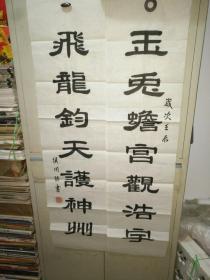 玉兎蟾宮觀浩宇
歲次壬辰
飛龍鈞天護神州